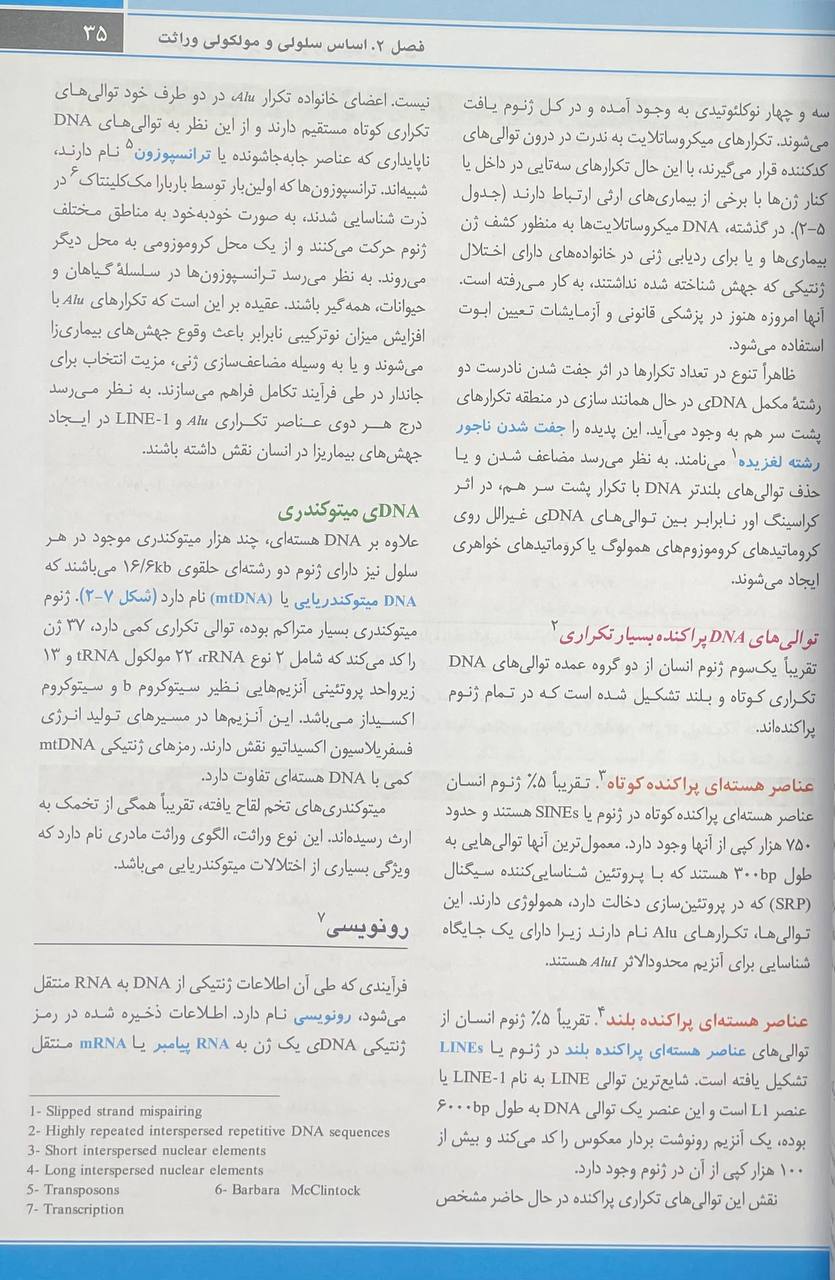 فصل ۲. اساس سلولی و مولکولی وراثت
۳۵
سه و چهار نوکلئوتیدی به وجود آمده و در کـل ژنـوم یـافت
می‌شوند. تکرارهای میکروساتلایت به ندرت در درون توالی‌های
کدکننده قرار می‌گیرند، با این حال تکرارهای سه‌تایی در داخل یا
کنار ژن‌ها با برخی از بیماری‌های ارثی ارتباط دارند (جدول
۵-۲). در گذشته، DNA میکروساتلایت‌ها به منظور کشف ژن
بیماری‌ها و یا برای ردیابی ژنی در خانواده‌های دارای اختلال
ژنتیکی که جهش شناخته شده نداشتند، به کار می‌رفته است.
آنها امروزه هنوز در پزشکی قانونی و آزمایشات تعیین ابوت
استفاده می‌شود.
ظاهراً تنوع در تعداد تکرارها در اثر جفت شدن نادرست دو
رشتهٔ مکمل DNAی در حال همانند سازی در منطقه تکرارهای
پشت سر هم به وجود می‌آید. این پدیده را جفت شدن ناجور
رشته لغزیده۱ می‌نامند. به نظر می‌رسد مضاعف شدن و یـا
حذف توالی‌های بلندتر DNA با تکرار پشت سر هم، در اثـر
کراسینگ اور نابرابـر بـین تـوالی‌های DNAی غیرالل روی
کروماتیدهای کروموزوم‌های همولوگ یا کروماتیدهای خواهری
ایجاد می‌شوند.
توالی‌های DNA پراکنده بسیار تکراری۲
تقریباً یک‌سوم ژنوم انسان از دو گروه عمده توالی‌های DNA
تکراری کوتاه و بلند تشکیل شده است کـه در تـمام ژنـوم
پراکنده‌اند.
عناصر هسته‌ای پراکنده کوتاه۳. تـقریباً ۵٪ ژنـوم انسـان
عناصر هسته‌ای پراکنده کوتاه در ژنوم یا SINEs هستند و حدود
۷۵۰ هزار کپی از آنها وجود دارد. معمول‌ترین آنها توالی‌هایی به
طول ۳۰۰bp هستند که بـا پـروتئین شناسایی‌کننده سـیگنال
(SRP) که در پروتئین‌سازی دخالت دارد، همولوژی دارند. این
توالی‌ها، تکرارهای Alu نام دارند زیـرا دارای یک جـایگاه
شناسایی برای آنزیم محدودالاثر AluI هستند.
عناصر هسته‌ای پراکنده بلند۴. تقریباً ۵٪ ژنوم انسـان از
توالی‌های عناصر هسته‌ای پراکنده بلند در ژنوم یـا LINEs
تشکیل یافته است. شایع‌ترین توالی LINE به نام LINE-1 یا
عنصر L1 است و این عنصر یک توالی DNA به طول ۶۰۰۰bp
بوده، یک آنزیم رونوشت بردار معکوس را کد می‌کند و بیش از
۱۰۰ هزار کپی از آن در ژنوم وجود دارد.
نقش این توالی‌های تکراری پراکنده در حال حاضر مشخص
نیست. اعضای خانواده تکرار Alu، در دو طرف خود توالی‌هـای
تکراری کوتاه مستقیم دارند و از این نظر به توالی‌هـای DNA
ناپایداری که عناصر جابه‌جاشونده یا ترانسپوزون۵ نـام دارنـد،
شبیه‌اند. ترانسپوزون‌ها که اولین‌بار توسط باربارا مک‌کلینتاک۶ در
ذرت شناسایی شدند، به صورت خودبه‌خود به مناطق مـختلف
ژنوم حرکت می‌کنند و از یک محل کروموزومی به محل دیگر
می‌روند. به نظر می‌رسد تـرانسـپوزون‌ها در سـلسلهٔ گـیاهان و
حیوانات، همه‌گیر باشند. عقیده بر این است که تکرارهای Alu با
افزایش میزان نوترکیبی نابرابر باعث وقوع جهش‌های بیماری‌زا
می‌شوند و یا به وسیله مضاعف‌سازی ژنی، مزیت انتخاب برای
جاندار در طی فرآیند تکامل فراهم می‌سازند. به نـظر مـی‌رسد
درج هـر دوی عـناصر تکـراری Alu و LINE-1 در ایـجاد
جهش‌های بیماریزا در انسان نقش داشته باشند.
DNAی میتوکندری
علاوه بر DNA هسته‌ای، چند هزار میتوکندری موجود در هـر
سلول نیز دارای ژنوم دو رشته‌ای حلقوی ۱۶/۶kb می‌باشند که
DNA میتوکندریایی یا (mtDNA) نام دارد (شکل ۷-۲). ژنوم
میتوکندری بسیار متراکم بوده، توالی تکراری کمی دارد، ۳۷ ژن
را کد می‌کند که شامل ۲ نوع rRNA، ۲۲ مولکول tRNA و ۱۳
زیرواحد پروتئینی آنزیم‌هایی نظیر سیتوکروم b و سیتوکروم
اکسـیداز مـی‌باشد. این آنزیم‌ها در مسیرهای تولید انرژی
فسفریلاسیون اکسیداتیو نقش دارند. رمزهای ژنتیکی mtDNA
کمی با DNA هسته‌ای تفاوت دارد.
میتوکندری‌های تخم لقاح یافته، تقریباً همگی از تخمک به
ارث رسیده‌اند. این نوع وراثت، الگوی وراثت مادری نام دارد که
ویژگی بسیاری از اختلالات میتوکندریایی می‌باشد.
رونویسی۷
فرآیندی که طی آن اطلاعات ژنتیکی از DNA به RNA منتقل
می‌شود، رونویسی نام دارد. اطـلاعات ذخـیره شـده در رمـز
ژنتیکی DNAی یک ژن به RNA پیامبر یـا mRNA مـنتقل
1- Slipped strand mispairing
2- Highly repeated interspersed repetitive DNA sequences
3- Short interspersed nuclear elements
4- Long interspersed nuclear elements
5- Transposons 6- Barbara McClintock
7- Transcription